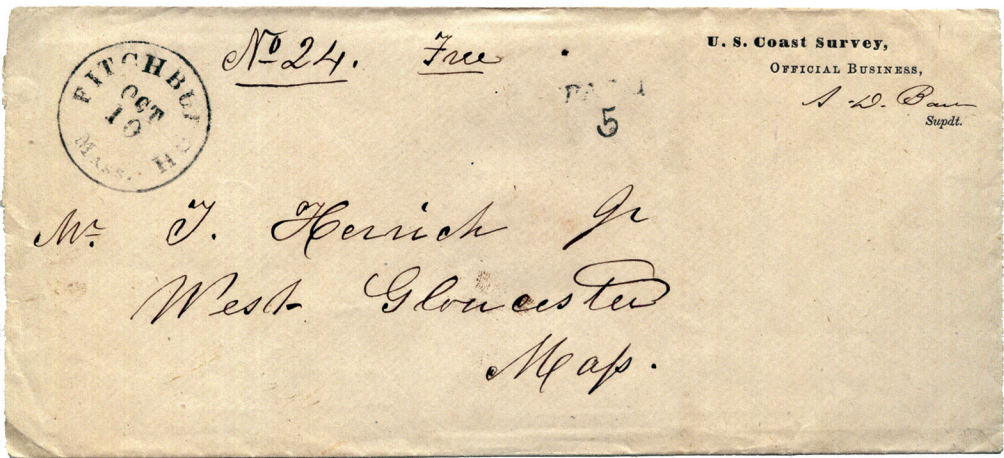 FITCHBURGH
OCT
10
MASS.
No 24. Free
PAID
5
U. S. Coast Survey,
OFFICIAL BUSINESS,
A. D. Bache
Supdt.
Mr. T. Herrich Jr
West Gloucester
Mass.